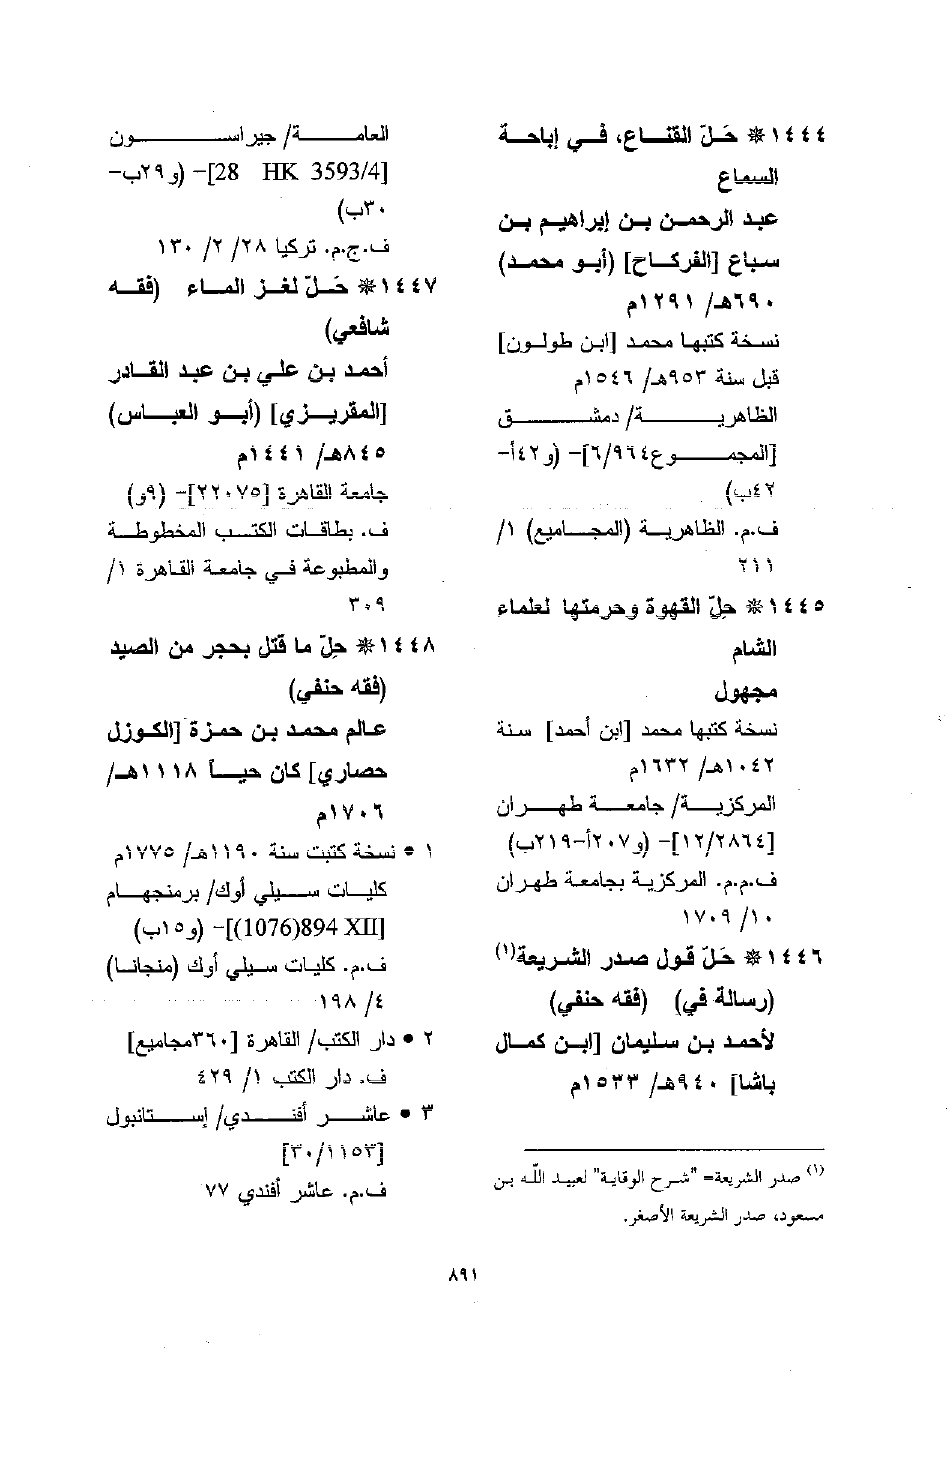 ١٤٤٤ * حَلّ القناع، في إباحة
السماع
عبد الرحمن بن إبراهيم بن
سباع [الفركاح] (أبو محمد)
٦٩٠هـ/ ١٢٩١م
نسخة كتبها محمد [ابن طولون]
قبل سنة ٩٥٣هـ/ ١٥٤٦م
الظاهرية/ دمشق
[المجموع ٦/٩٦٤]- (و٤٢أ-
٤٢ب)
ف.م. الظاهرية (المجاميع) ١/
٢١١
١٤٤٥ * حِلّ القهوة وحرمتها لعلماء
الشام
مجهول
نسخة كتبها محمد [ابن أحمد] سنة
١٠٤٢هـ/ ١٦٣٢م
المركزية/ جامعة طهران
[١٢/٢٨٦٤]- (و٢٠٧أ-٢١٩ب)
ف.م.م. المركزية بجامعة طهران
١٠/ ١٧٠٩
١٤٤٦ * حَلّ قول صدر الشريعة(١)
(رسالة في) (فقه حنفي)
لأحمد بن سليمان [ابن كمال
باشا] ٩٤٠هـ/ ١٥٣٣م
(١) صدر الشريعة= "شرح الوقاية" لعبيد اللّه بن
مسعود، صدر الشريعة الأصغر.
العامة/ جيراسون
[28 HK 3593/4]- (و٢٩ب-
٣٠ب)
ف.ج.م. تركيا ٢٨/ ٢/ ١٣٠
١٤٤٧ * حَلّ لغز الماء (فقه
شافعي)
أحمد بن علي بن عبد القادر
[المقريزي] (أبو العباس)
٨٤٥هـ/ ١٤٤١م
جامعة القاهرة [٢٢٠٧٥]- (٩و)
ف. بطاقات الكتب المخطوطة
والمطبوعة في جامعة القاهرة ١/
٣٠٩
١٤٤٨ * حِلّ ما قتل بحجر من الصيد
(فقه حنفي)
عالم محمد بن حمزة [الكوزل
حصاري] كان حياً ١١١٨هـ/
١٧٠٦م
١ • نسخة كتبت سنة ١١٩٠هـ/ ١٧٧٥م
كليات سيلي أوك/ برمنجهام
[894 XII(1076)]- (و١٥ب)
ف.م. كليات سيلي أوك (منجانا)
٤/ ١٩٨
٢ • دار الكتب/ القاهرة [٣٦٠مجاميع]
ف. دار الكتب ١/ ٤٢٩
٣ • عاشر أفندي/ إستانبول
[٣٠/١١٥٣]
ف.م. عاشر أفندي ٧٧
٨٩١